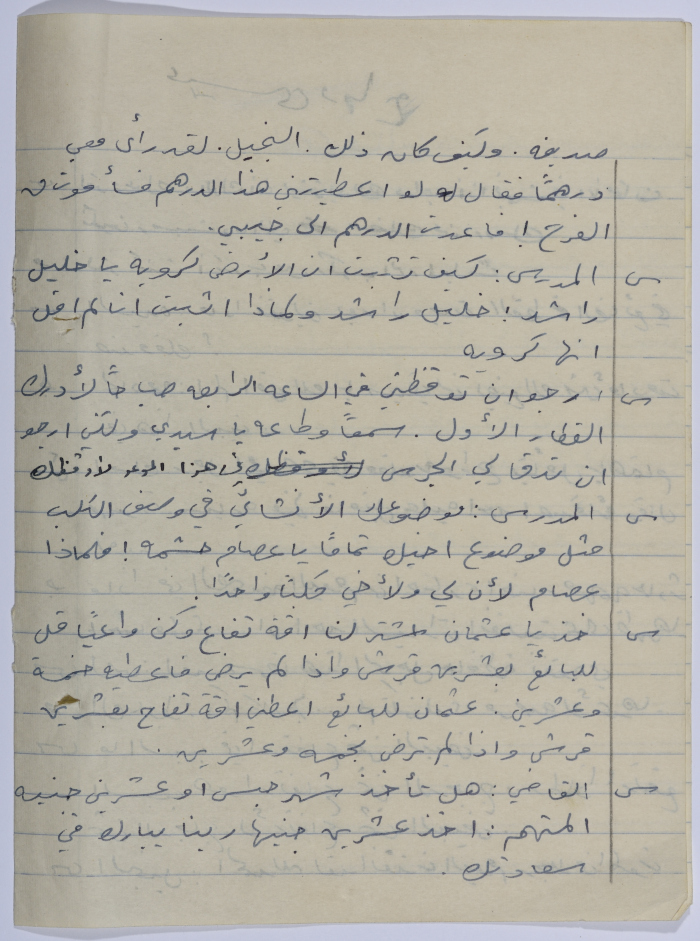 صديقه . وكيف كان ذلك . البخيل . لقد رأى معي
درهمًا فقال له لو اعطيتني هذا الدرهم فسأموت من
الفرح ! فاعدت الدرهم الى جيبي .
س المدرس : كيف تثبت ان الأرض كرويه يا خليل
راشد ! خليل راشد ولماذا اثبت انا لم اقل
انها كرويه
س ارجو ان توقظني في الساعه الرابعه صباحًا لأدرك
القطار الأول . سمعًا وطاعه يا سيدي ولكني ارجو
ان تدقا لي الجرس لأوقظك في هذا لأوقظك
س المدرس : موضوعك الأنشائي في وصف الكلب
مثل موضوع اخيك تمامًا يا عصام حشمه ! فلماذا
عصام لأن لي ولأخي كلبًا واحدًا .
س خذ يا عثمان اشتر لنا اقة تفاح وكن واعيًا قل
للبائع بعشرين قرش واذا لم يرض فاعطيه خمسة
وعشرين . عثمان للبائع اعطني اقة تفاح بعشرين
قرش واذا لم ترض بخمسه وعشرين .
س القاضي : هل تأخذ شهر حبس او عشرين جنيه
المتهم : اخذ عشرين جنيها ربنا يبارك في
سعادتك .